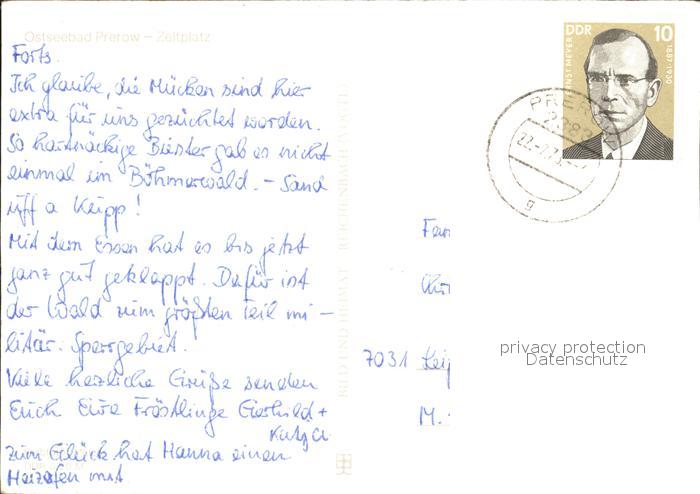 Ostseebad Prerow — Zeltplatz
Forts.
Ich glaube, die Mücken sind hier
extra für uns gezüchtet worden.
So hartnäckige Biester gab es nicht
einmal im Böhmerwald. – Sand
uff a Keipp!
Mit dem Essen hat es bis jetzt
ganz gut geklappt. Dafür ist
der Wald zum größten Teil mi –
litär. Sperrgebiet.
Viele herzliche Grüße senden
Euch Eure Fröstlinge Gerhild +
Katja
zum Glück hat Hanna einen
Heizofen mit.
BILD UND HEIMAT REICHENBACH (VOGTL)
DDR 10
ERNST MEYER 1887-1930
PREROW
2383
22.-7.7
g
Fam
7031 Leip
M.
privacy protection
Datenschutz